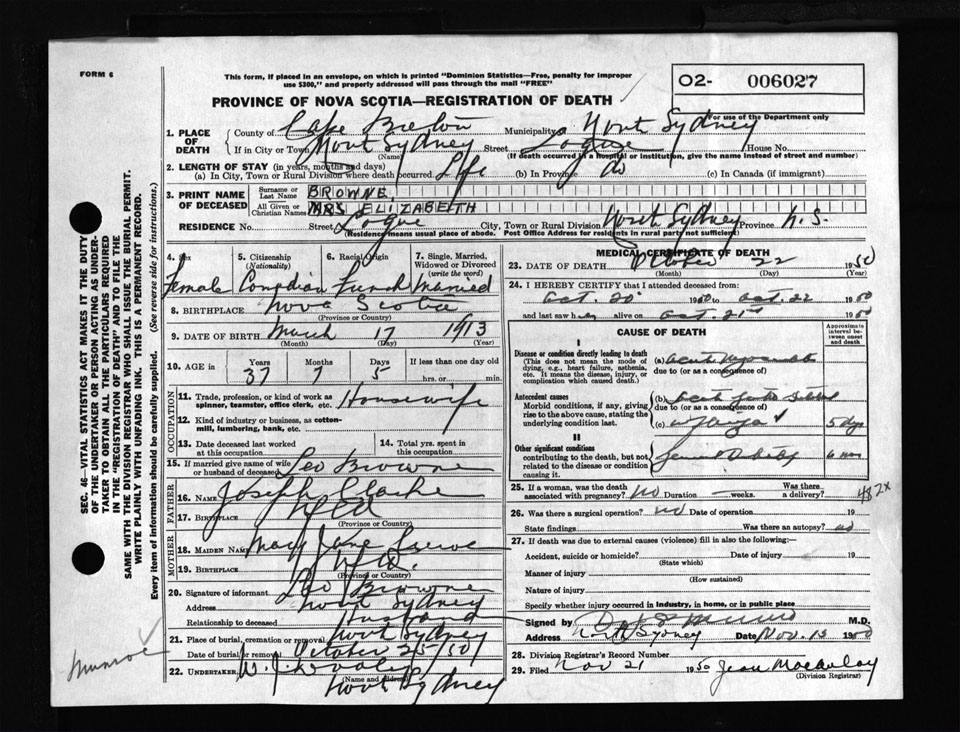 FORM 6
This form, if placed in an envelope, on which is printed "Dominion Statistics—Free, penalty for improper
use $300," and properly addressed will pass through the mail "FREE"
O2- 006027
For use of the Department only
PROVINCE OF NOVA SCOTIA—REGISTRATION OF DEATH
1. PLACE OF DEATH
County of Cape Breton Municipality of North Sydney
If in City or Town North Sydney Street Logue House No.
(Name) (If death occurred in a hospital or institution, give the name instead of street and number)
2. LENGTH OF STAY (in years, months and days)
(a) In City, Town or Rural Division where death occurred Life (b) In Province do (c) In Canada (if immigrant)
3. PRINT NAME OF DECEASED
Surname or Last Name BROWNE
All Given or Christian Names MRS ELIZABETH
RESIDENCE No. Street Logue City, Town or Rural Division North Sydney Province N.S.
(Residence means usual place of abode. Post Office Address for residents in rural parts not sufficient)
4. Sex Female
5. Citizenship (Nationality) Canadian
6. Racial Origin French
7. Single, Married, Widowed or Divorced (write the word) Married
8. BIRTHPLACE Nova Scotia
(Province or Country)
9. DATE OF BIRTH March 17 1913
(Month) (Day) (Year)
10. AGE in Years Months Days If less than one day old
37 7 5 hrs. or min.
OCCUPATION
11. Trade, profession, or kind of work as spinner, teamster, office clerk, etc. Housewife
12. Kind of industry or business, as cotton-mill, lumbering, bank, etc.
13. Date deceased last worked at this occupation
14. Total yrs. spent in this occupation
15. If married give name of wife or husband of deceased Leo Browne
FATHER
16. NAME Joseph Clarke
17. BIRTHPLACE
(Province or Country)
MOTHER
18. MAIDEN NAME Mary Jane
19. BIRTHPLACE
(Province or Country)
20. Signature of informant Leo Browne
Address North Sydney
Relationship to deceased Husband
21. Place of burial, cremation or removal North Sydney
Date of burial or removal October 25/50
22. UNDERTAKER
(Name and address)
North Sydney
MEDICAL CERTIFICATE OF DEATH
23. DATE OF DEATH October 22 1950
(Month) (Day) (Year)
24. I HEREBY CERTIFY that I attended deceased from:
Oct. 20 1950 to Oct. 22 1950
and last saw her alive on Oct. 21st 1950
CAUSE OF DEATH
Approximate interval between onset and death
I
Disease or condition directly leading to death
(This does not mean the mode of dying, e.g., heart failure, asthenia, etc. It means the disease, injury, or complication which caused death.)
(a)
due to (or as a consequence of)
Antecedent causes
Morbid conditions, if any, giving rise to the above cause, stating the underlying condition last.
(b)
due to (or as a consequence of)
(c) 5 dys
II
Other significant conditions
contributing to the death, but not related to the disease or condition causing it.
6 mos
25. If a woman, was the death associated with pregnancy? no Duration — weeks. Was there a delivery?
482x
26. Was there a surgical operation? no Date of operation 19
State findings Was there an autopsy? no
27. If death was due to external causes (violence) fill in also the following:—
Accident, suicide or homicide? Date of injury 19
(State which)
Manner of injury
(How sustained)
Nature of injury
Specify whether injury occurred in industry, in home, or in public place
Signed by Munro M.D.
Address North Sydney Date Nov. 13 1950
28. Division Registrar's Record Number
29. Filed Nov 21 1950 Jean MacAulay
(Division Registrar)
Munroe
SEC. 46—VITAL STATISTICS ACT MAKES IT THE DUTY
OF THE UNDERTAKER OR PERSON ACTING AS UNDER-
TAKER TO OBTAIN ALL THE PARTICULARS REQUIRED
IN THE "REGISTRATION OF DEATH" AND TO FILE THE
SAME WITH THE DIVISION REGISTRAR WHO SHALL ISSUE THE BURIAL PERMIT.
WRITE PLAINLY WITH UNFADING INK. THIS IS A PERMANENT RECORD.
Every item of information should be carefully supplied. (See reverse side for instructions.)